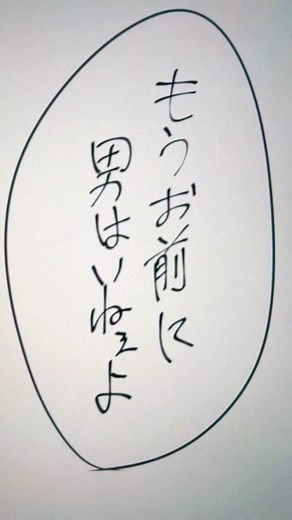 もうお前に
男はいねぇよ